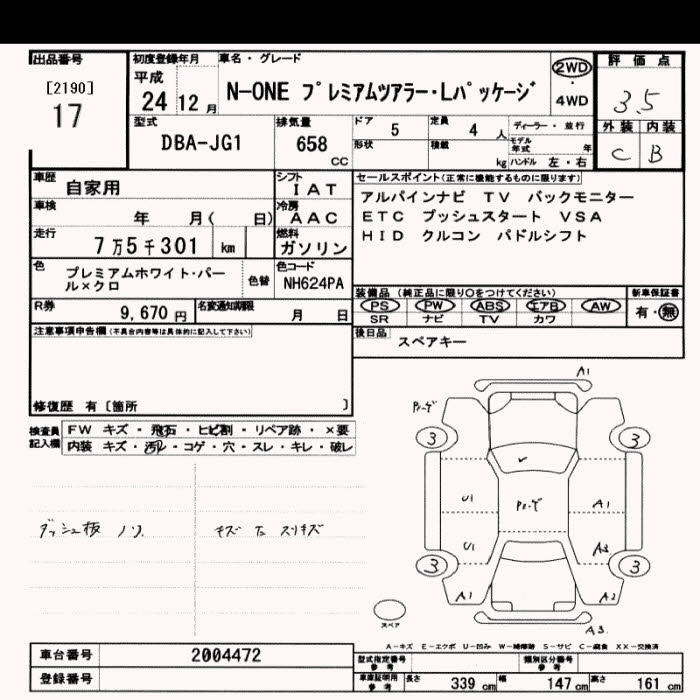 出品番号
[2190]
17
初度登録年月
平成
24 12 月
車名・グレード
N-ONE プレミアムツアラー・Lパッケージ
2WD
・
4WD
評価点
3.5
外装 内装
C B
型式
DBA-JG1
排気量
658
cc
ドア 5
定員 4 人
ディーラー・並行
形状
積載
kg
モデル年式 年
ハンドル 左・右
車歴 自家用
シフト
IAT
車検 年 月( 日)
冷房
AAC
走行 7万5千301 km
燃料
ガソリン
色 プレミアムホワイト・パール×クロ
色替
色コード
NH624PA
R券 9,670 円
名変通知期限 月 日
セールスポイント(正常に機能するものに限ります)
アルパインナビ TV バックモニター
ETC プッシュスタート VSA
HID クルコン パドルシフト
装備品(純正品に限り○をつけてください)
新車保証書
PS PW ABS エアB AW
有・無
SR ナビ TV カワ
後日品 スペアキー
注意事項申告欄(不具合内容等は具体的に記入して下さい)
修復歴 有〔箇所 〕
検査員
記入欄
FW キズ・飛石・ヒビ割・リペア跡・×要
内装 キズ・汚レ・コゲ・穴・スレ・キレ・破レ
ダッシュ板 ノリ
キズ スリキズ
A1
3 3
U1
A1
U1
A3
3 3
A1
A2
スペア
A3
A-キズ E-エクボ U-凹み W-補修跡 S-サビ C-腐食 XX-交換済
車台番号 2004472
登録番号
型式指定番号
参考
類別区分番号
参考
車庫証明用
参考
長さ 339 cm 幅 147 cm 高さ 161 cm